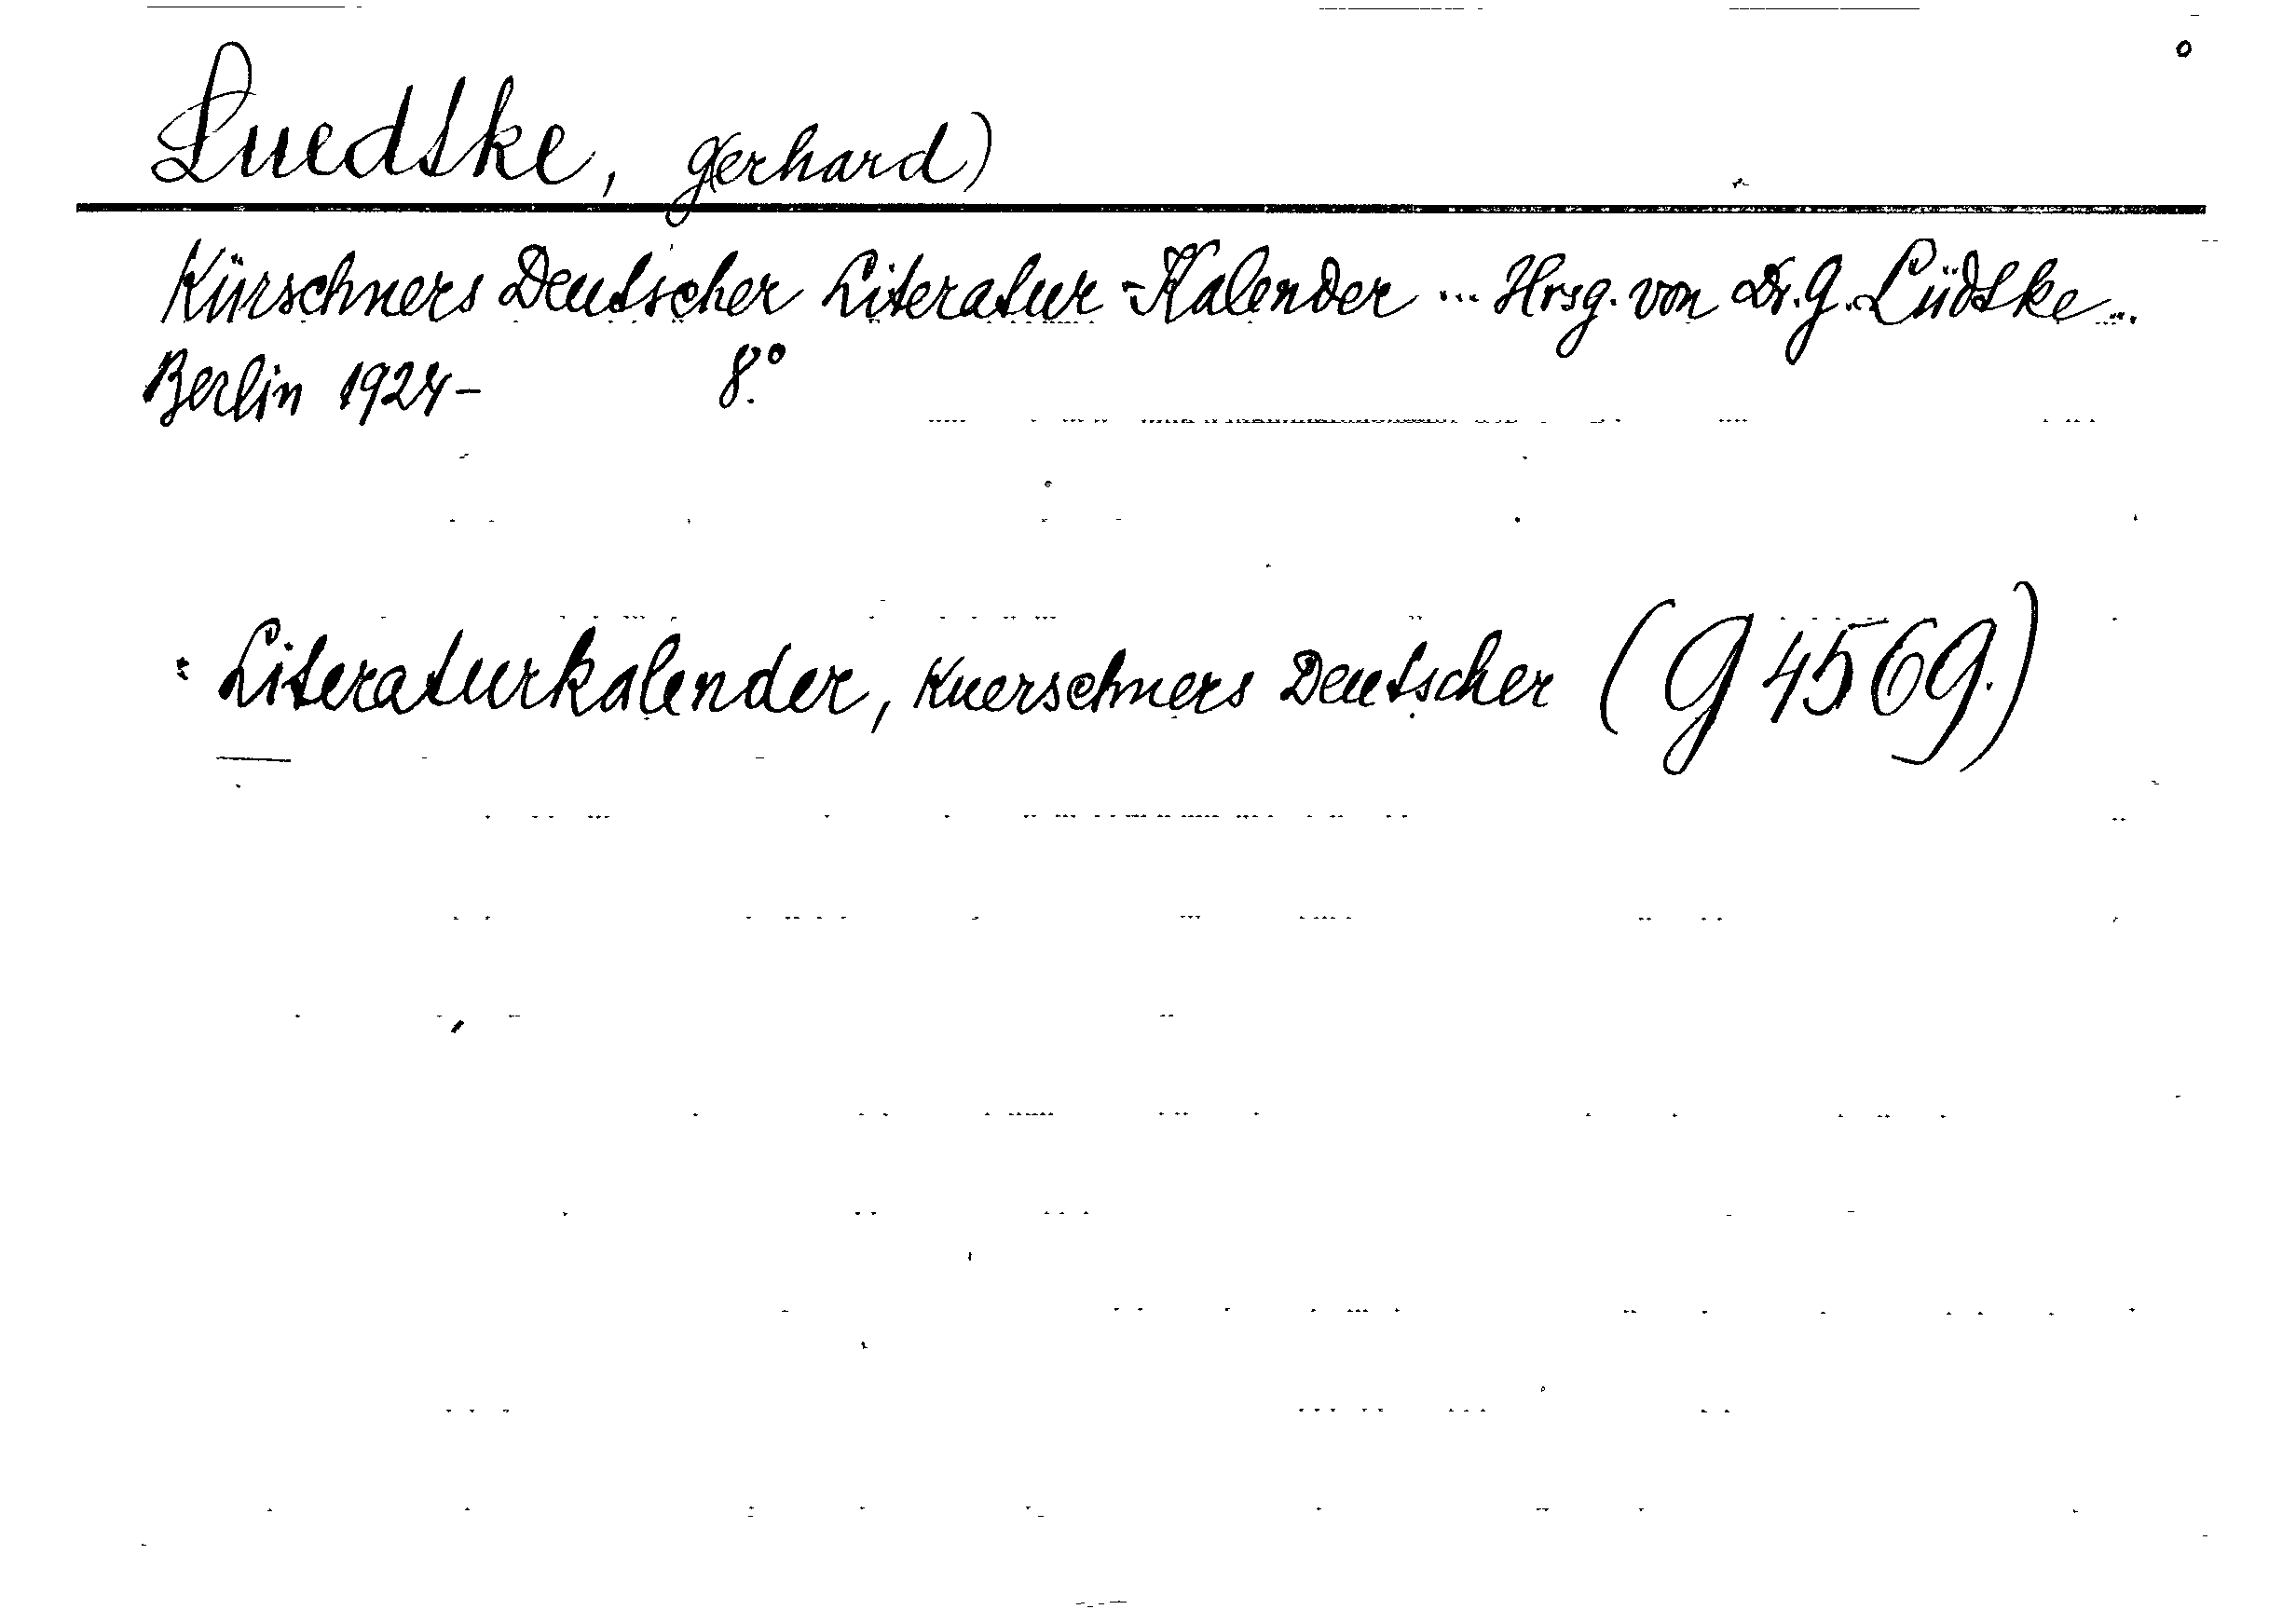 Luedtke, Gerhard)
Kürschners Deutscher Literatur-Kalender ... Hrsg. von Dr. G. Lüdtke ...
Berlin 1924- 8°.
: Literaturkalender, Kuerschners Deutscher (G 4569.)